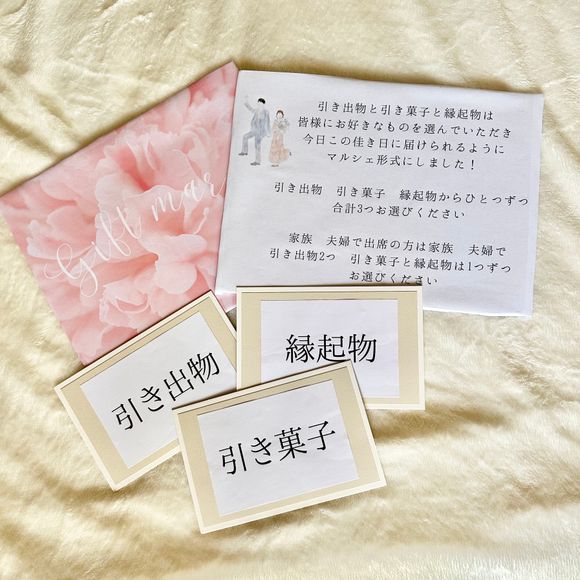 Gift mar
引き出物と引き菓子と縁起物は
皆様にお好きなものを選んでいただき
今日この佳き日に届けられるように
マルシェ形式にしました！
引き出物　引き菓子　縁起物からひとつずつ
合計3つお選びください
家族　夫婦で出席の方は家族　夫婦で
引き出物2つ　引き菓子と縁起物は1つずつ
お選びください
引き出物
縁起物
引き菓子